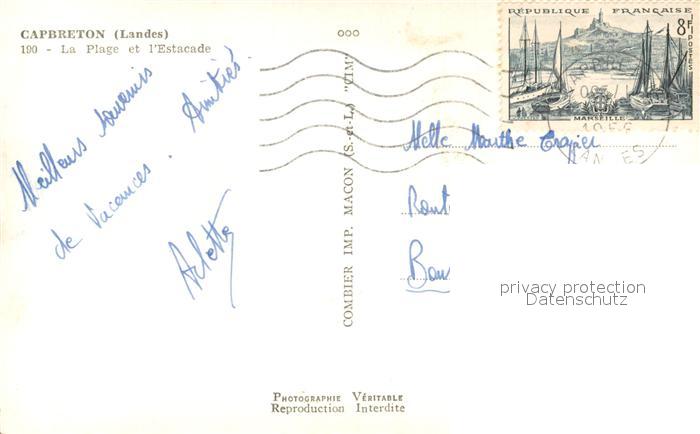 CAPBRETON (Landes)
190 - La Plage et l'Estacade
Meilleurs souvenirs
de Vacances.
Amitiés.
Arlette
COMBIER IMP. MACON (S.-et-L.) "CIM"
RÉPUBLIQUE FRANÇAISE
8F
POSTES
MARSEILLE
LANDES
Melle Marthe
Rout
Bou
privacy protection
Datenschutz
PHOTOGRAPHIE VÉRITABLE
Reproduction Interdite